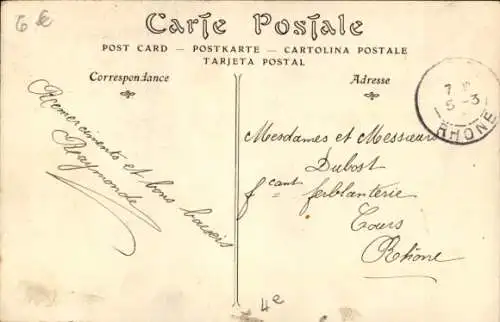 6 €
Carte Postale
POST CARD — POSTKARTE — CARTOLINA POSTALE
TARJETA POSTAL
Correspondance
Remerciments et bons baisers
Raymonde
Adresse
7
5-3
RHONE
Mesdames et Messieurs
Dubost
fcant ferblanterie
Cours
Rhône
4e